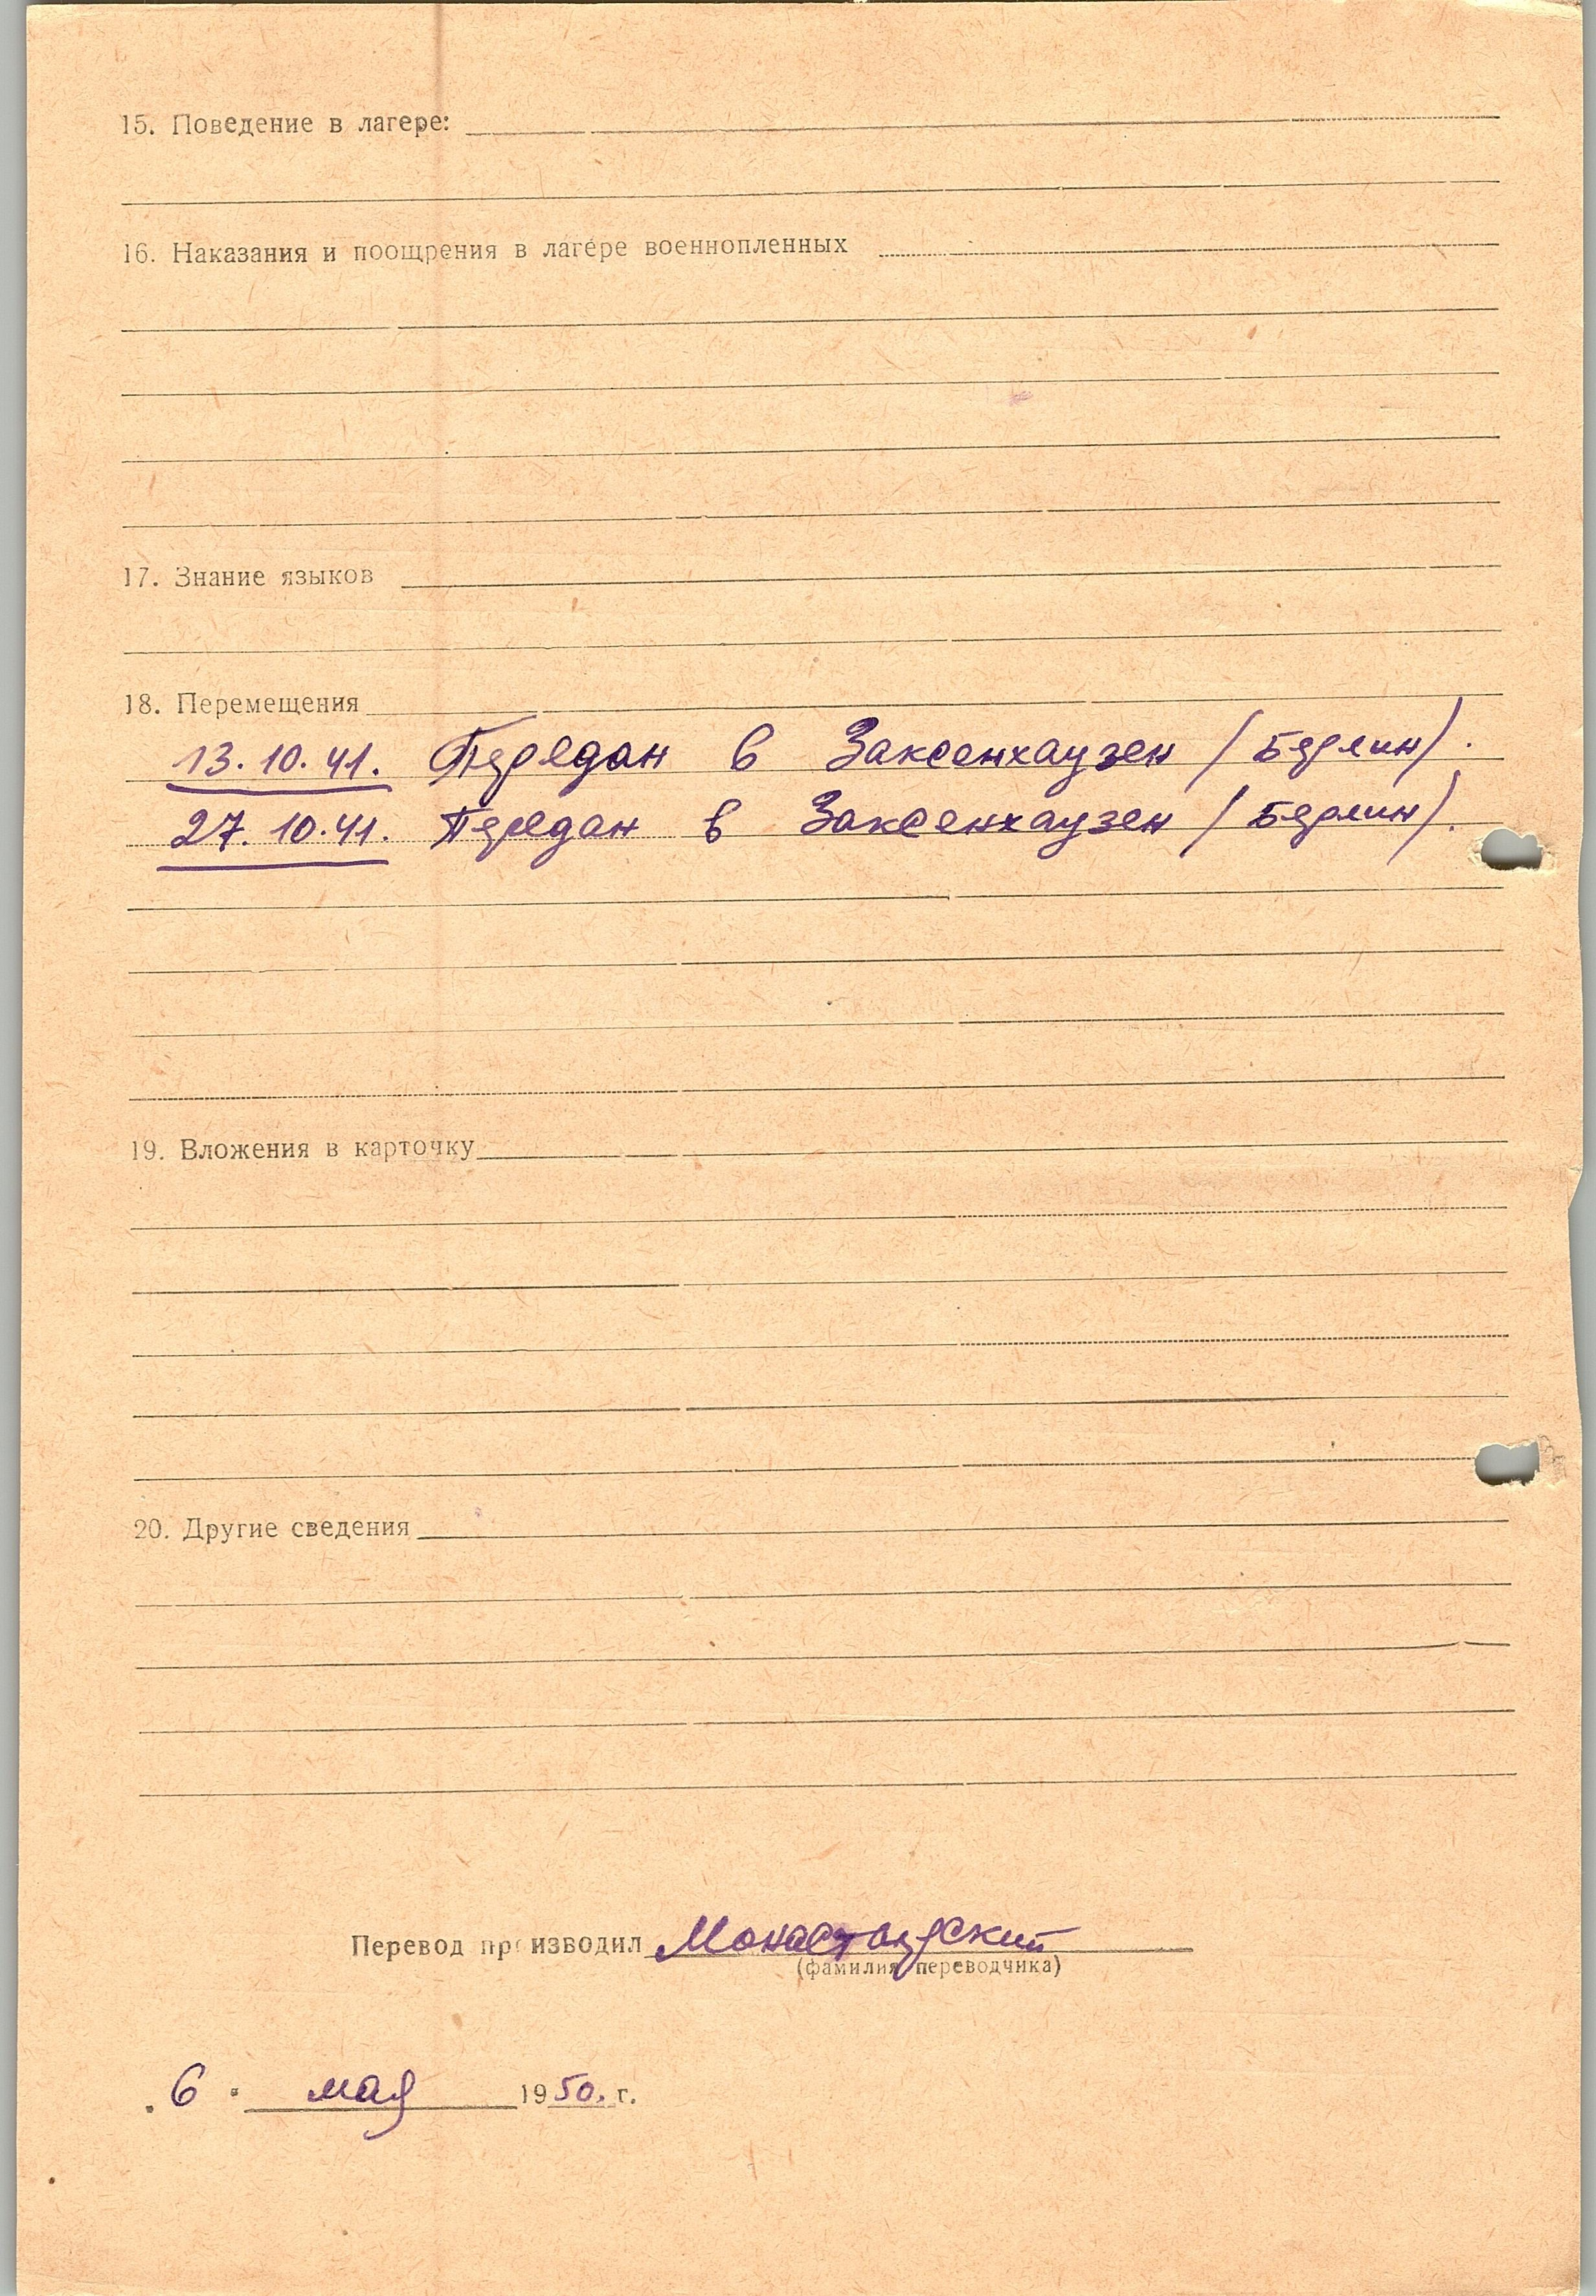 15. Поведение в лагере:
16. Наказания и поощрения в лагере военнопленных
17. Знание языков
18. Перемещения
13.10.41. Передан в Заксенхаузен /Берлин/.
27.10.41. Передан в Заксенхаузен /Берлин/.
19. Вложения в карточку
20. Другие сведения
Перевод производил Монастырский
(фамилия переводчика)
"6" мая 1950. г.